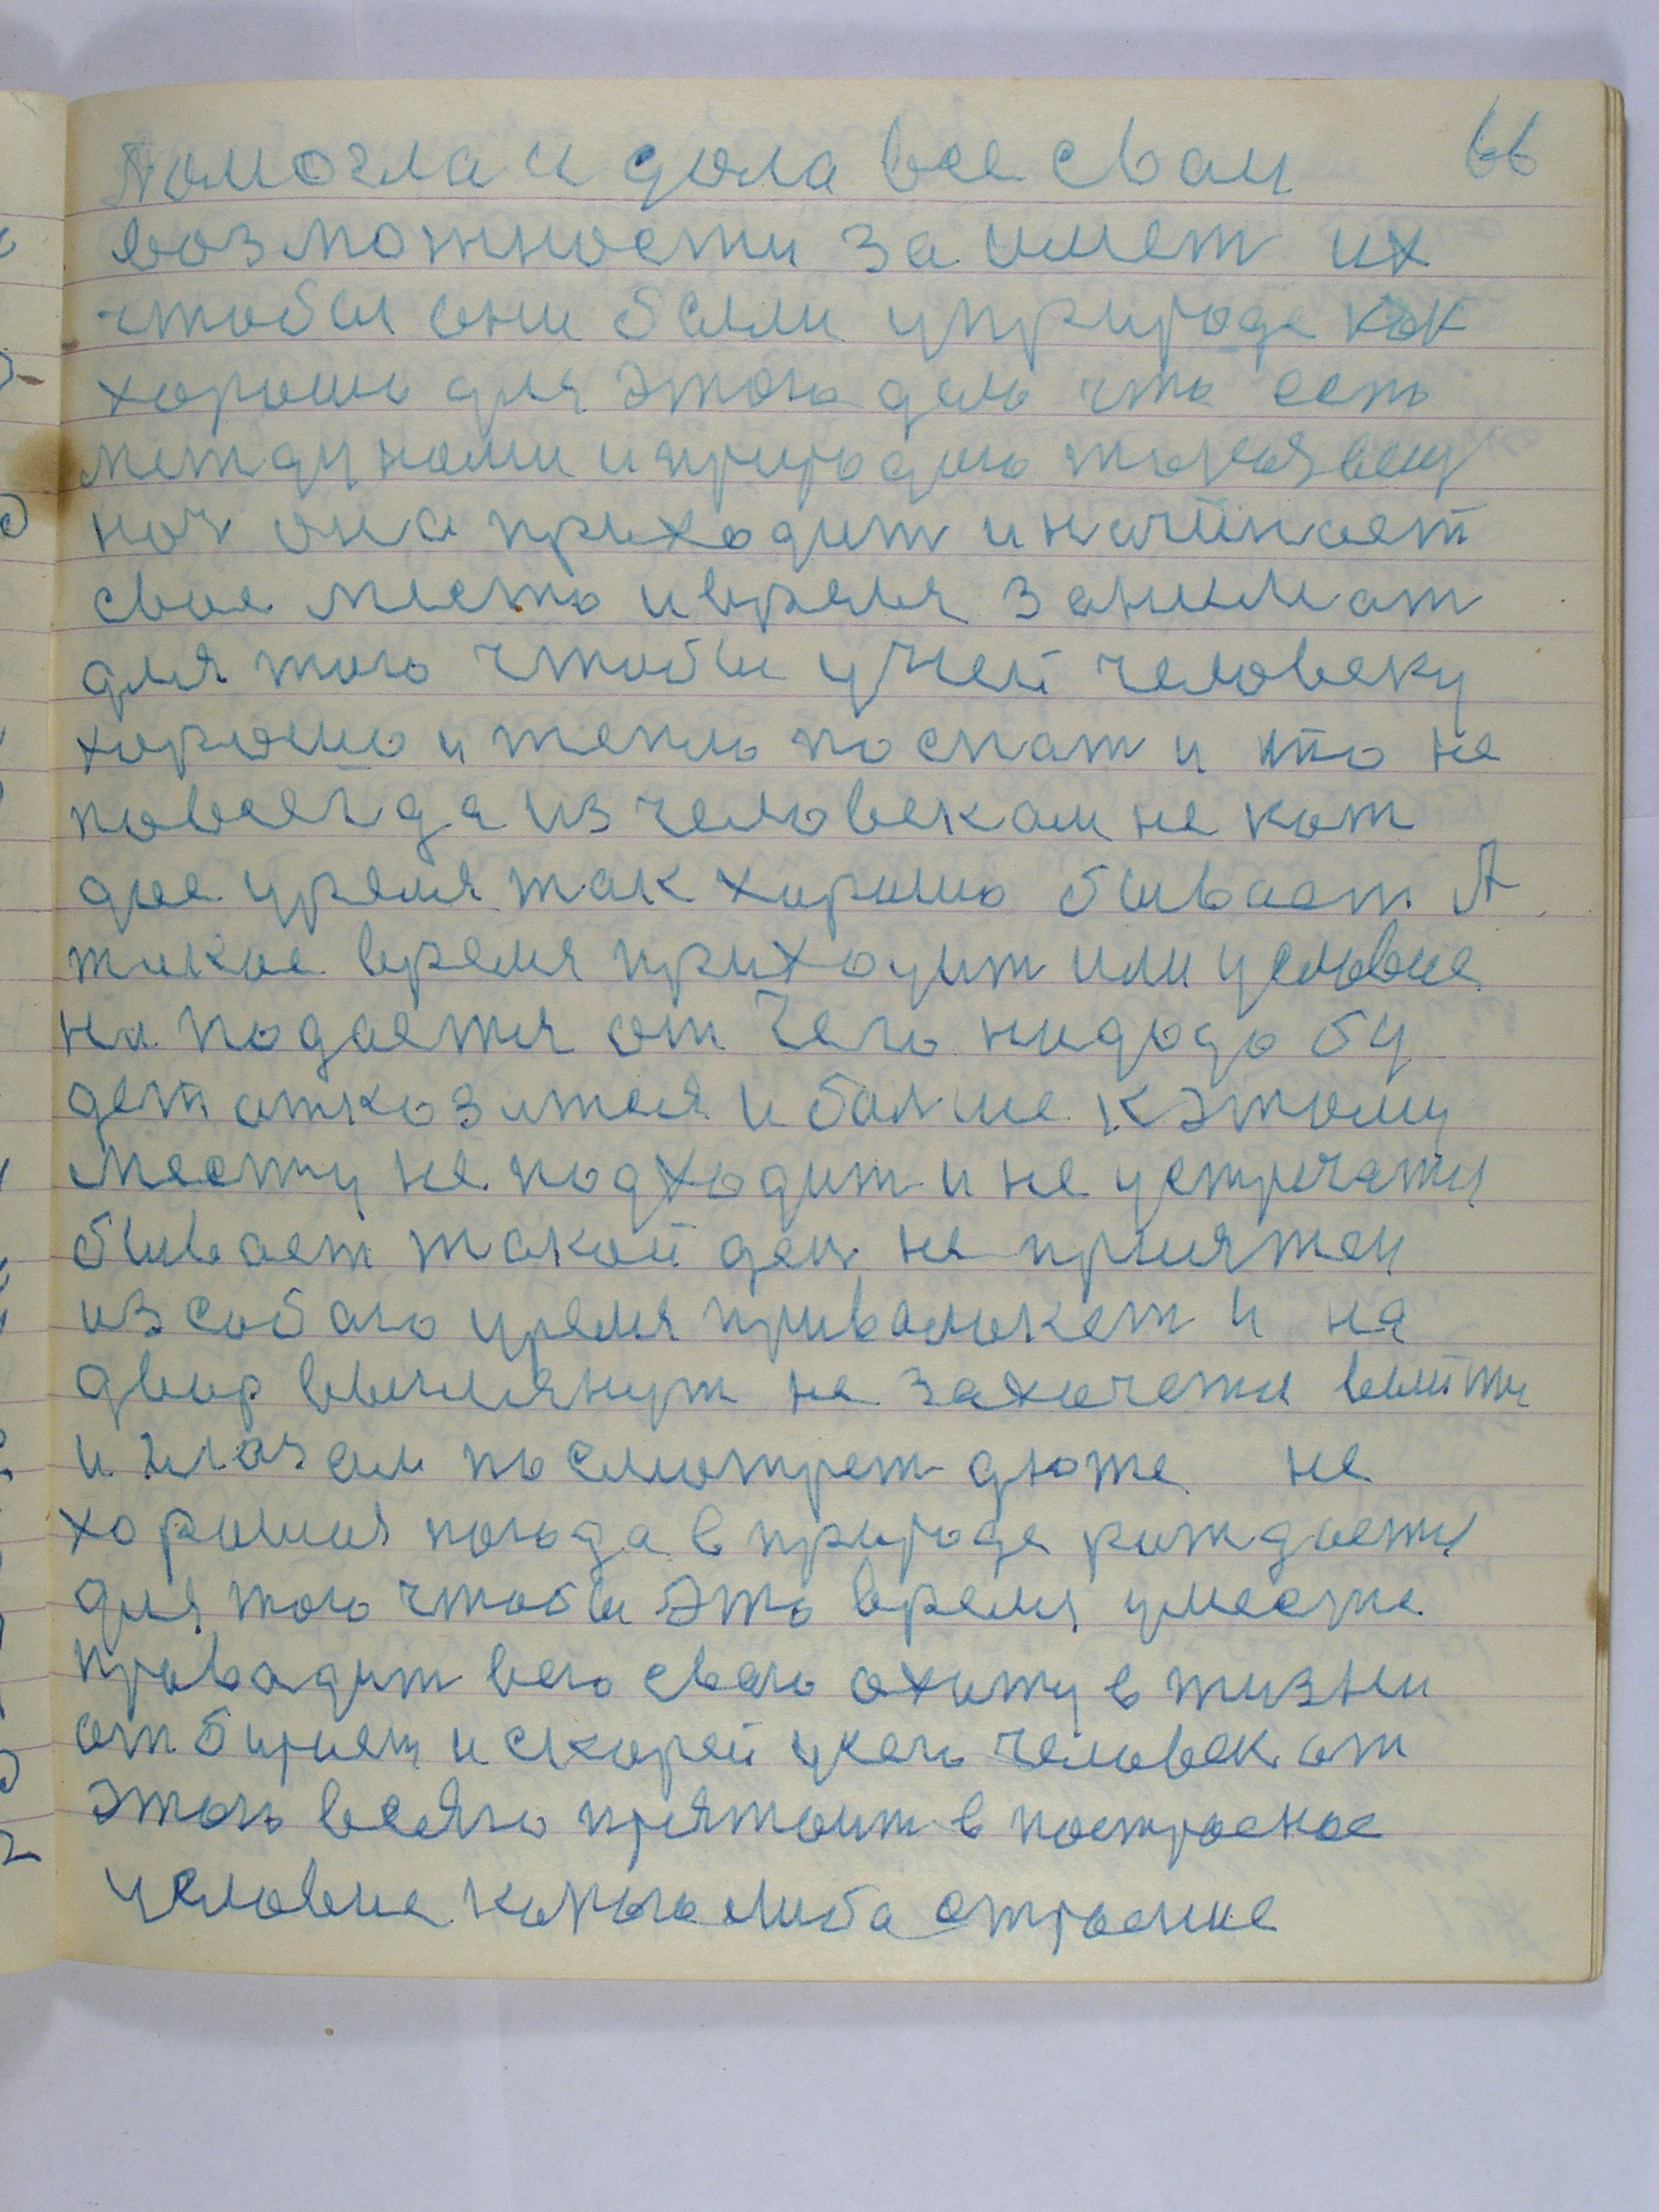 66
Помогла и дола все сваи
возможности за имет их
чтобы они были уприроде как
хорошо для этого дело что есть
между нами и природою такая вещ
ноч она приходит и начинает
свое место и время занимат
для того чтобы уней человеку
хорошо и тепло поспат и это не
повсегда из человекам не кат
дое уремя так хорошо бывает А
такое время приходит или условие
на подается от чего надодо бу
дет отказатся и болше кэтому
месту не подходит и не устречатя
бывает такой ден не приятен
из собаю уремя приваликет и на
двор выглянут не захочетя выйти
и глазам посмотрет дюже не
хорошия погода в природе рождаетя
для того чтобы это время уместе
правадит всю сваю охоту в жизни
отбирает и скорей усего человек от
этого всего прятоит в построеное
условие какого либа строение